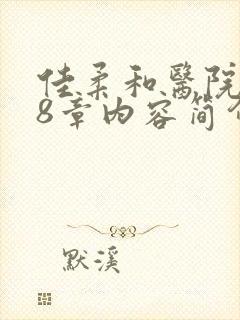 佳柔和醫院
8章内容简
默溪